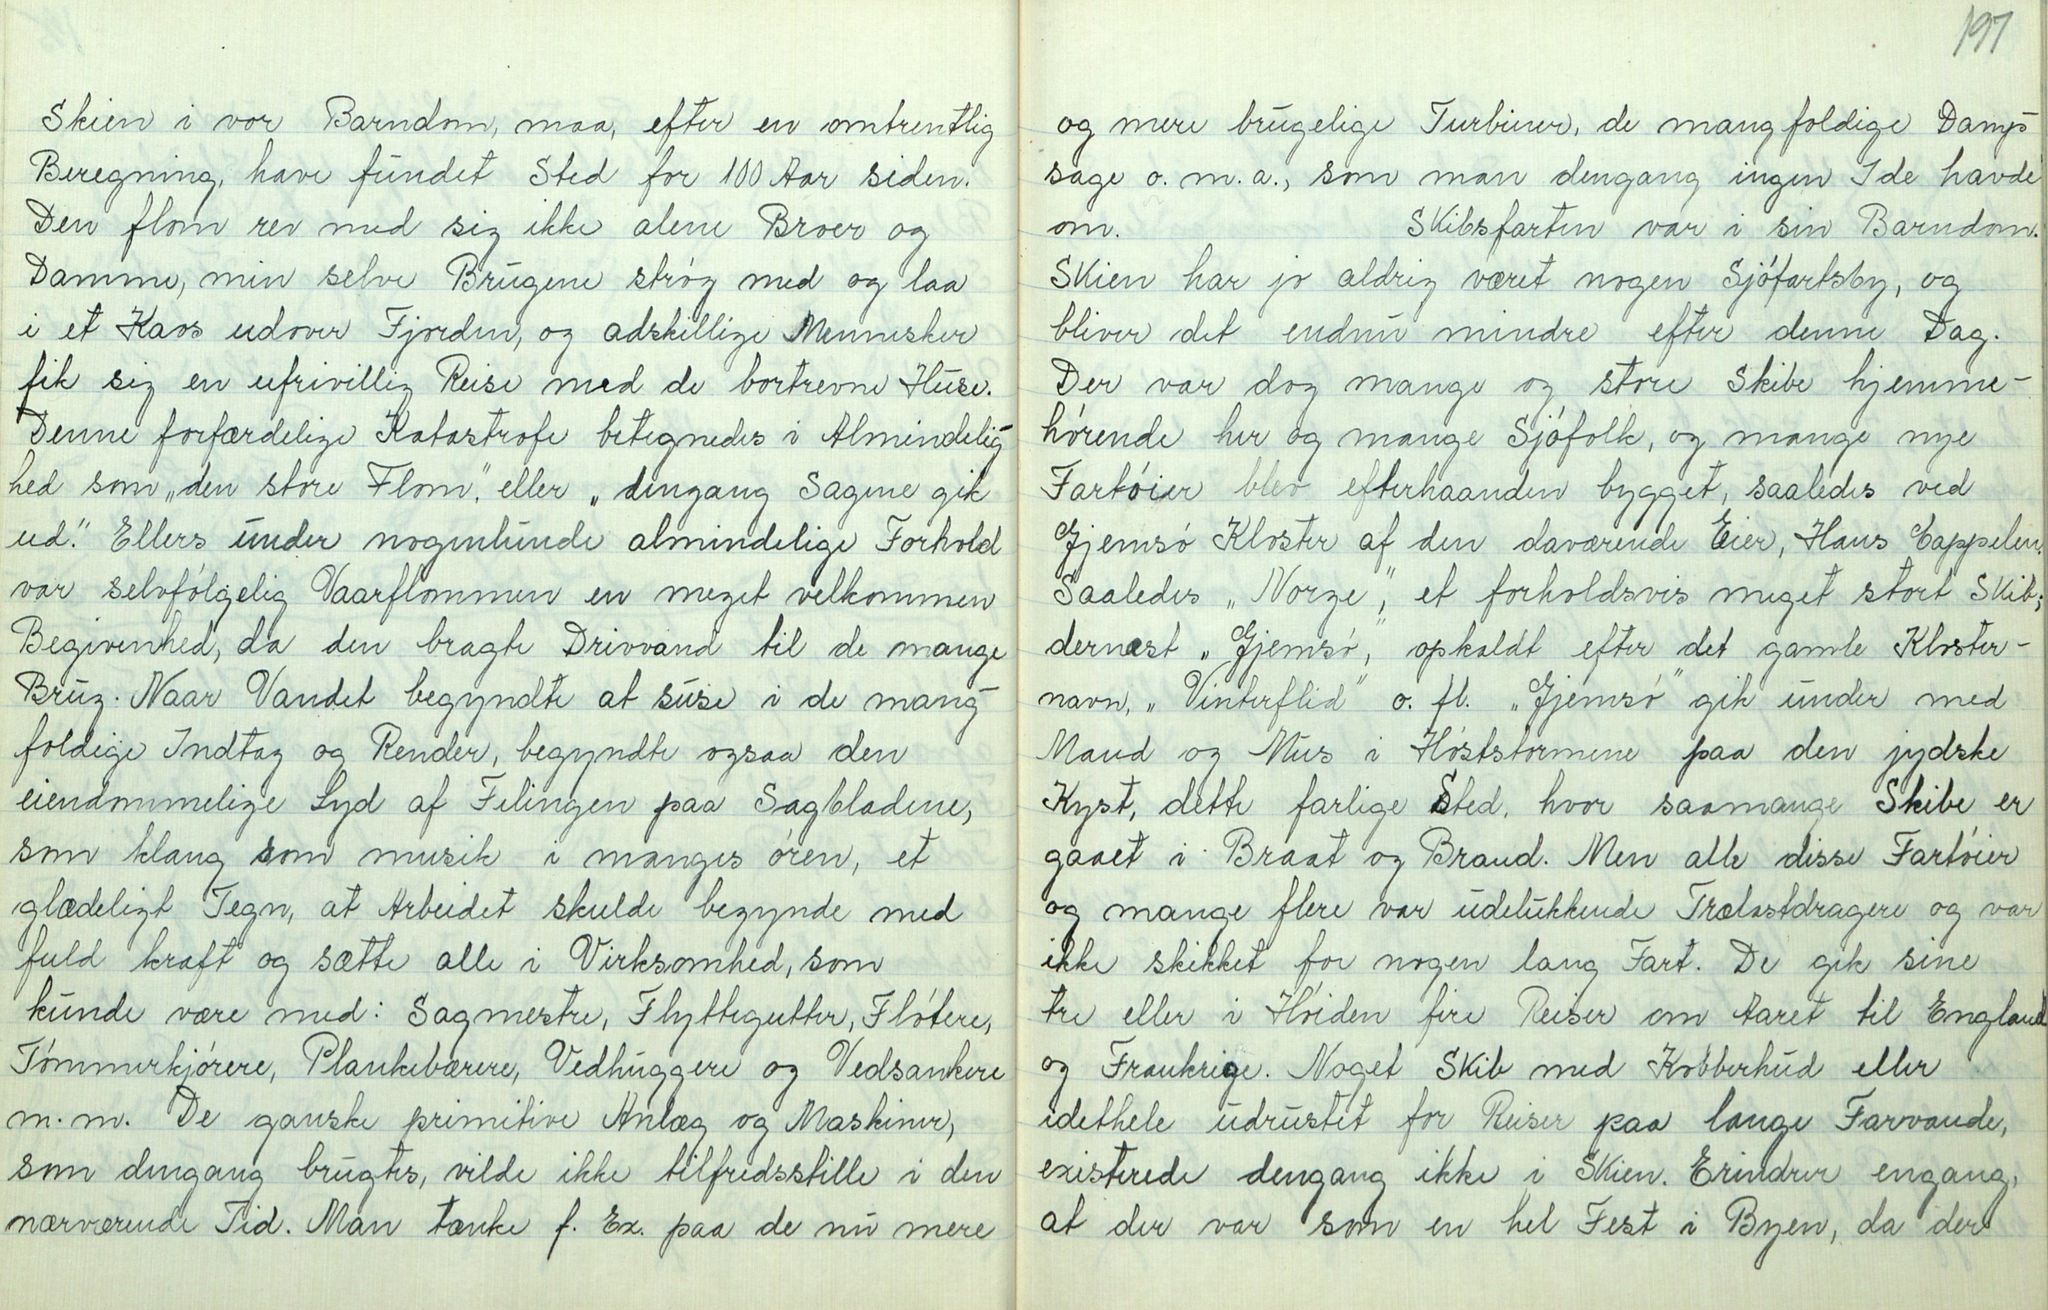 Skien i vor Barndom, maa, efter en omtrentlig
Beregning, have fundet Sted for 100 Aar siden.
Den flom rev med sig ikke alene Broer og
Damme, men selve Brugene strøg med og laa
i et Kaos udover Fjorden, og adskillige Mennesker
fik sig en ufrivillig Reise med de bortrevne Huse.
Denne forfærdelige Katastrofe betegnedes i Almindelig-
hed som „den store Flom”. eller „dengang Sagene gik
ud.” Ellers under nogenlunde almindelige Forhold
var selvfølgelig Vaarflommen en meget velkommen
Begivenhed, da den bragte Drivvand til de mange
Brug. Naar Vandet begyndte at suse i de mang-
foldige Indtag og Render, begyndte ogsaa den
eiendommelige Lyd af Filingen paa Sagbladene,
som klang som musik i manges øren, et
glædeligt Tegn, at Arbeidet skulde begynde med
fuld kraft og sætte alle i Virksomhed, som
kunde være med: Sagmestre, Flyttegutter, Fløtere,
Tømmerkjørere, Plankebærere, Vedhuggere og Vedsankere
m.m. De ganske primitive Anlæg og Maskiner,
som dengang brugtes, vilde ikke tilfredsstille i den
nærværende Tid. Man tænke f. Ex. paa de nu mere
197
og mere brugelige Turbiner, de mangfoldige Damp-
sage o.m.a., som man dengang ingen Ide havde
om. Skibsfarten var i sin Barndom.
Skien har jo aldrig været nogen Sjøfartsby, og
bliver det endnu mindre efter denne Dag.
Der var dog mange og store Skibe hjemme-
hørende her og mange Sjøfolk, og mange nye
Fartøier blev efterhaanden bygget, saaledes ved
Gjemsø Kloster af den daværende Eier, Hans Cappelen.
Saaledes „Norge”, et forholdsvis meget stort Skib;
dernæst „Gjemsø”, opkaldt efter det gamle Kloster-
navn, „Vinterflid” o. fl. „Gjemsø” gik under med
Mand og Mus i Høststormene paa den jydske
Kyst, dette farlige Sted, hvor saamange Skibe er
gaaet i Braat og Brand. Men alle disse Fartøier
og mange flere var udelukkende Trælastdragere og var
ikke skikket for nogen lang Fart. De gik sine
tre eller i Høiden fire Reiser om Aaret til England
og Frankrige. Noget Skib med Kobberhud eller
idethele udrustet for Reiser paa lange Farvande,
existerede dengang ikke i Skien. Erindrer engang,
at der var som en hel Fest i Byen, da der